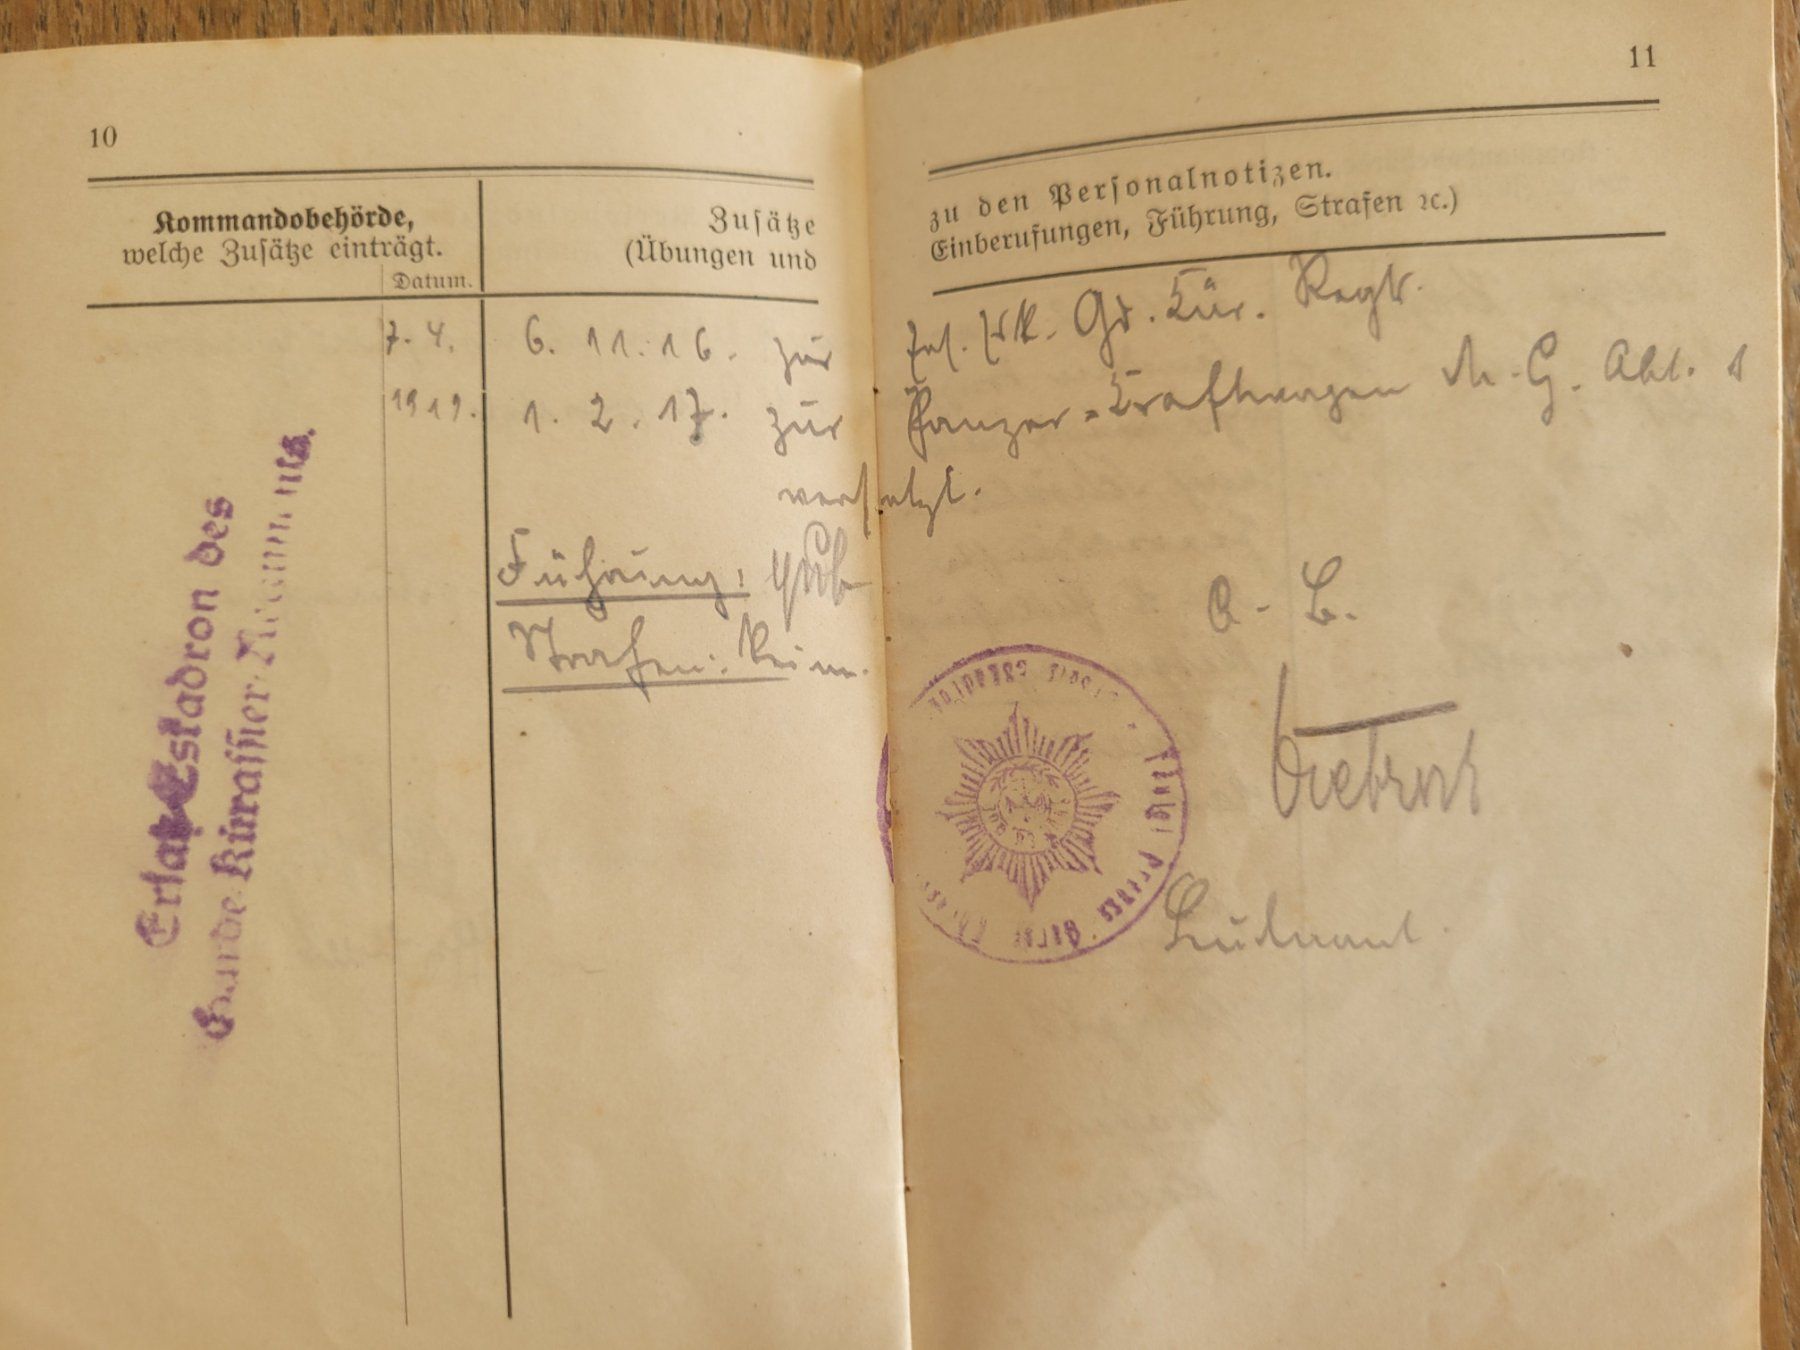 10
Kommandobehörde,
welche Zusätze einträgt.
Datum.
Zusätze
(Übungen und
11
zu den Personalnotizen.
Einberufungen, Führung, Strafen ꝛc.)
7. 4.
1919.
6. 11. 16. zur Gd. Kür. Regt.
1. 2. 17. zur Panzer-Kraftwagen M. G. Abt. 1
versetzt.
Führung: gut
Strafen: Keine.
Ersatz-Eskadron des
Garde-Kürassier-Regiments.
Leutnant.